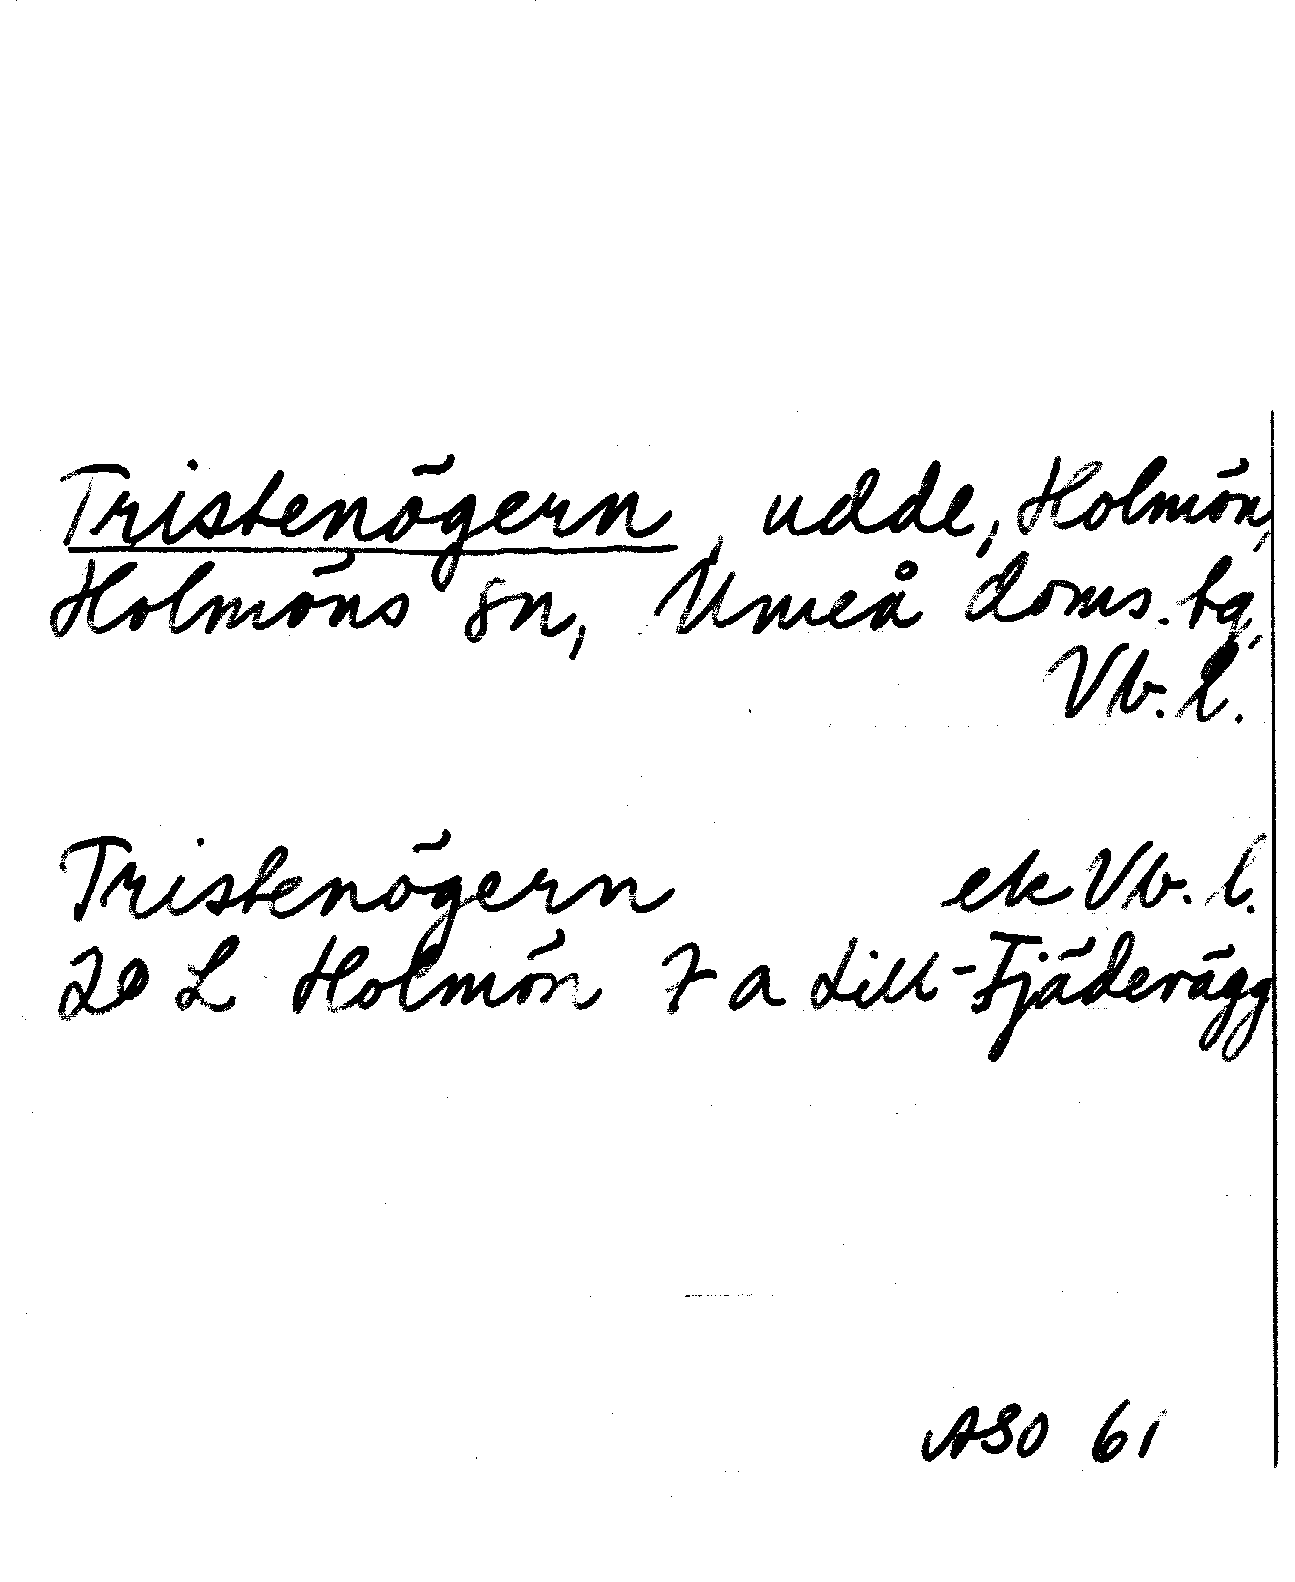 Tristenögern, udde, Holmön,
Holmöns sn, Umeå doms. tg,
Vb. l.
Tristenögern ek Vb. l.
20 L Holmön 7 a Lill-Fjäderägg
ASO 61